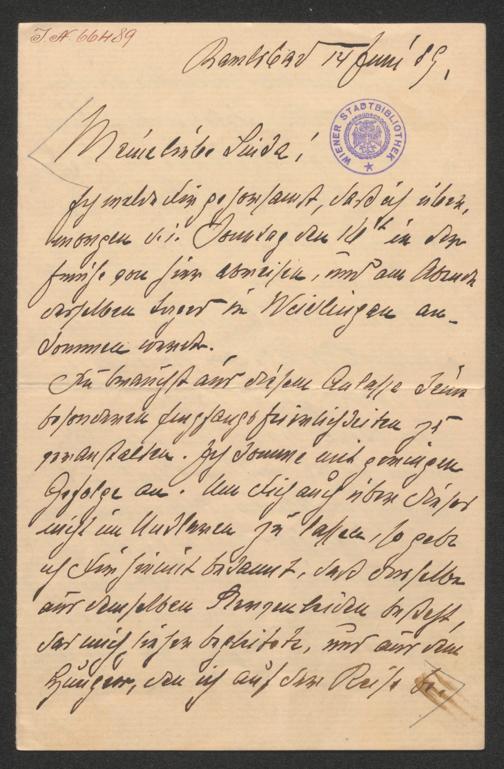 J. N. 66489
Karlsbad 14 Juni 89.
WIENER STADTBIBLIOTHEK
Meine liebe Linda!
Ich melde Dir gehorsamst, daß ich über,
morgen d. i. Sonntag den 16t in der
Frühe von hier abreisen, und am Abende
desselben Tages in Weidlingau an-
kommen werde.
Du brauchst aus diesem Anlasse keine
besonderen Empfangsfeierlichkeiten zu
veranstalten. Ich komme mit geringem
Gefolge an. Um Dich auch über dieses
nicht im Unklaren zu lassen, so gebe
ich Dir hiemit bekannt, daß dasselbe
aus demselben Magenleiden besteht,
das mich hieher begleitete, und aus dem
Hunger, den ich auf der Reise